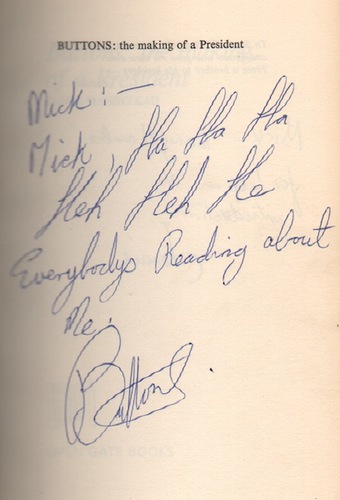 BUTTONS: the making of a President
Mick :—
Mick, Ha Ha Ha
Heh Heh He
Everybodys Reading about
Me.
Buttons.